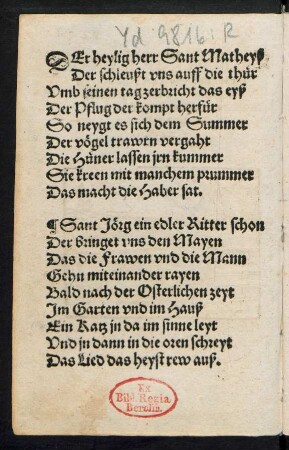 Yd 9816 : R
DEr heylig herr Sant Matheyß
Der schleußt vns auff die thür
Vmb seinen tag zerbricht das eyß
Der Pflug der kompt herfür
So neygt es sich dem Summer
Der vögel trawrn vergaht
Die Hüner lassen jrn kummer
Sie kreen mit manchem prummer
Das macht die Haber sat.
¶ Sant Jörg ein edler Ritter schon
Der bringet vns den Mayen
Das die Frawen vnd die Mann
Gehn miteinander rayen
Bald nach der Osterlichen zeyt
Im Garten vnd im Hauß
Ein Katz jn da im sinne leyt
Vnd jn dann in die oren schreyt
Das Lied das heyst rew auß.
Ex
Bibl. Regia
Berolin.